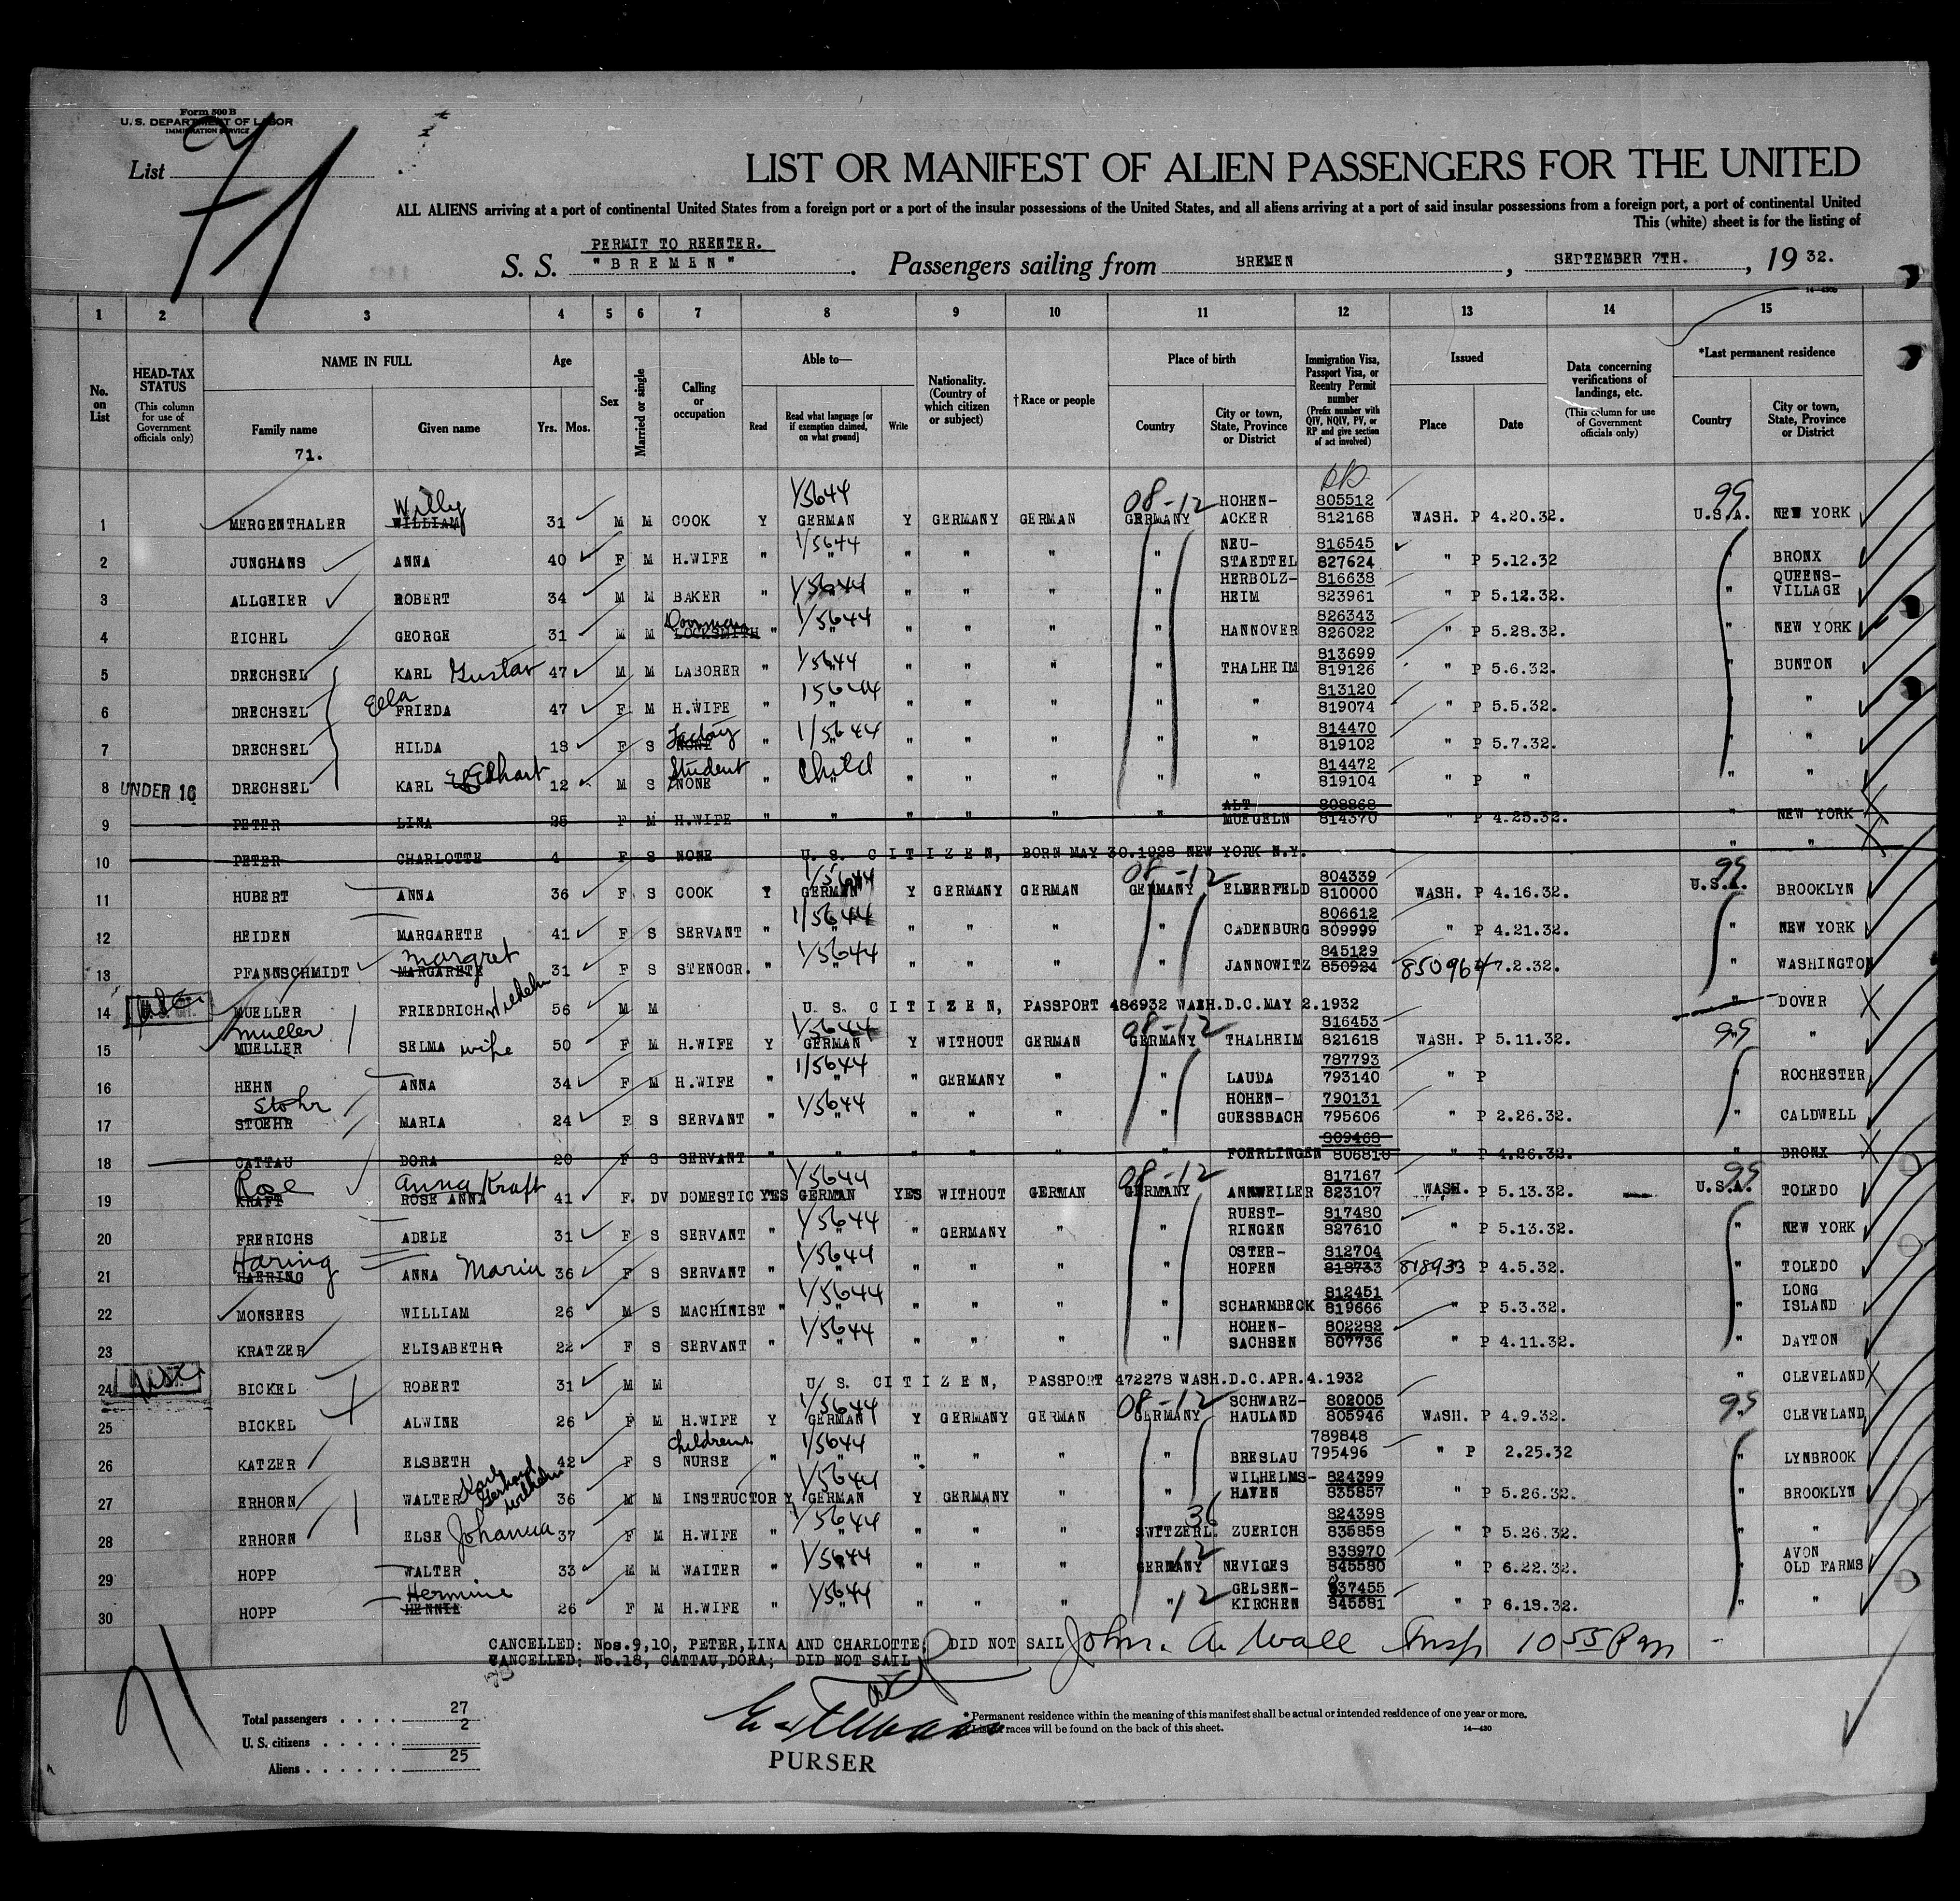 Form 500 B
U. S. DEPARTMENT OF LABOR
IMMIGRATION SERVICE
List
71
LIST OR MANIFEST OF ALIEN PASSENGERS FOR THE UNITED
ALL ALIENS arriving at a port of continental United States from a foreign port or a port of the insular possessions of the United States, and all aliens arriving at a port of said insular possessions from a foreign port, a port of continental United
This (white) sheet is for the listing of
PERMIT TO REENTER.
S. S. "BREMEN". Passengers sailing from BREMEN, SEPTEMBER 7TH., 1932.
1 2 3 4 5 6 7 8 9 10 11 12 13 14 15
No. on List
HEAD-TAX STATUS (This column for use of Government officials only)
NAME IN FULL Family name Given name
71.
Age Yrs. Mos.
Sex
Married or single
Calling or occupation
Able to— Read Read what language [or if exemption claimed, on what ground] Write
Nationality. (Country of which citizen or subject)
†Race or people
Place of birth Country City or town, State, Province or District
Immigration Visa, Passport Visa, or Reentry Permit number (Prefix number with QIV, NQIV, PV, or RP and give section of act involved)
Issued Place Date
Data concerning verifications of landings, etc. (This column for use of Government officials only)
*Last permanent residence Country City or town, State, Province or District
1 MERGENTHALER WILLIAM Willy 31 M M COOK Y GERMAN 1/5644 Y GERMANY GERMAN 08-12 GERMANY HOHEN-ACKER 805512 812168 WASH. P 4.20.32. 99 U.S.A. NEW YORK
2 JUNGHANS ANNA 40 F M H.WIFE " " 1/5644 " " " " NEU-STAEDTEL 816545 827624 " P 5.12.32 " BRONX
3 ALLGEIER ROBERT 34 M M BAKER " 1/5644 " " " " HERBOLZ-HEIM 816638 823961 " P 5.12.32. " QUEENS-VILLAGE
4 EICHEL GEORGE 31 M M LOCKSMITH Doorman " " 1/5644 " " " " HANNOVER 826343 826022 " P 5.28.32. " NEW YORK
5 DRECHSEL KARL Gustav 47 M M LABORER " " 1/5644 " " " " THALHEIM 813699 819126 " P 5.6.32. " BUNTON
6 DRECHSEL Ella FRIEDA 47 F M H.WIFE " " 15644 " " " " " 813120 819074 " P 5.5.32. " "
7 DRECHSEL HILDA 18 F S NONE Factory " " 1/5644 " " " " " 814470 819102 " P 5.7.32. " "
8 UNDER 16 DRECHSEL KARL Ekhart 12 M S NONE Student " " Child " " " " " 814472 819104 " P " " "
9 PETER LINA 25 F M H.WIFE " " " " " " ALT MUEGELN 808868 814370 " P 4.25.32. " NEW YORK
10 PETER CHARLOTTE 4 F S NONE U. S. CITIZEN, BORN MAY 30.1928 NEW YORK N.Y. " "
11 HUBERT ANNA 36 F S COOK Y GERMAN 1/5644 Y GERMANY GERMAN 08-12 GERMANY ELBERFELD 804339 810000 WASH. P 4.16.32. 99 U.S.A. BROOKLYN
12 HEIDEN MARGARETE 41 F S SERVANT " " 1/5644 " " " " CADENBURG 806612 809999 " P 4.21.32. " NEW YORK
13 PFANNSCHMIDT MARGARETE Margret 31 F S STENOGR. " " 1/5644 " " " " JANNOWITZ 845129 850924 850964 7.2.32. " WASHINGTON
14 MUELLER FRIEDRICH Wilhelm 56 M M U. S. CITIZEN, PASSPORT 486932 WASH.D.C.MAY 2.1932 " DOVER
15 MUELLER Muller SELMA wife 50 F M H.WIFE Y GERMAN 1/5644 Y WITHOUT GERMAN 08-12 GERMANY THALHEIM 816453 821618 WASH. P 5.11.32. 99 "
16 HEHN ANNA 34 F M H.WIFE " " 1/5644 " GERMANY " " LAUDA 787793 793140 " P " ROCHESTER
17 STOEHR Stohr MARIA 24 F S SERVANT " " 1/5644 " " " " HOHEN-GUESSBACH 790131 795606 " P 2.26.32. " CALDWELL
18 CATTAU DORA 20 F S SERVANT " " " " " " FOERLINGEN 809468 806810 " P 4.26.32. " BRONX
19 KRAFT Rose ROSE ANNA Anna Kraft 41 F. DV DOMESTIC YES GERMAN 1/5644 YES WITHOUT GERMAN 08-12 GERMANY ANNWEILER 817167 823107 WASH. P 5.13.32. 99 U.S.A. TOLEDO
20 FRERICHS ADELE 31 F S SERVANT " " 1/5644 " GERMANY " " RUEST-RINGEN 817480 827610 " P 5.13.32. " NEW YORK
21 HAERING Haring ANNA Maria 36 F S SERVANT " " 1/5644 " " " " OSTER-HOFEN 812704 818733 818933 P 4.5.32. " TOLEDO
22 MONSEES WILLIAM 26 M S MACHINIST " " 1/5644 " " " " SCHARMBECK 812451 819666 " P 5.3.32. " LONG ISLAND
23 KRATZER ELISABETHA 22 F S SERVANT " " 1/5644 " " " " HOHEN-SACHSEN 802282 807736 " P 4.11.32. " DAYTON
24 BICKEL ROBERT 31 M M U. S. CITIZEN, PASSPORT 472278 WASH.D.C.APR.4.1932 " CLEVELAND
25 BICKEL ALWINE 26 F M H.WIFE Y GERMAN 1/5644 Y GERMANY GERMAN 08-12 GERMANY SCHWARZ-HAULAND 802005 805946 WASH. P 4.9.32. 95 CLEVELAND
26 KATZER ELSBETH 42 F S Childrens NURSE " " 1/5644 " " " " BRESLAU 789848 795496 " P 2.25.32 " LYNBROOK
27 ERHORN WALTER Karl Gerhard Wilhelm 36 M M INSTRUCTOR Y GERMAN 1/5644 Y GERMANY " " WILHELMS-HAVEN 824399 835857 " P 5.26.32. " BROOKLYN
28 ERHORN ELSE Johanna 37 F M H.WIFE " " 1/5644 " " " 36 SWITZERL. ZUERICH 824398 835858 " P 5.26.32. " "
29 HOPP WALTER 33 M M WAITER " " 1/5644 " " " 12 GERMANY NEVIGES 838970 845580 " P 6.22.32. " AVON OLD FARMS
30 HOPP HENNIE Hermine 26 F M H.WIFE " " 1/5644 " " " " 12 GELSEN-KIRCHEN 837455 845581 " P 6.18.32. " "
CANCELLED: Nos.9,10, PETER,LINA AND CHARLOTTE; DID NOT SAIL John. A. Wall Insp 10 55 Pm
CANCELLED: No.18, CATTAU,DORA; DID NOT SAIL
71
Total passengers . . . . 27
U. S. citizens . . . . . 2
Aliens . . . . . . 25
PURSER
* Permanent residence within the meaning of this manifest shall be actual or intended residence of one year or more.
† List of races will be found on the back of this sheet.
14—430